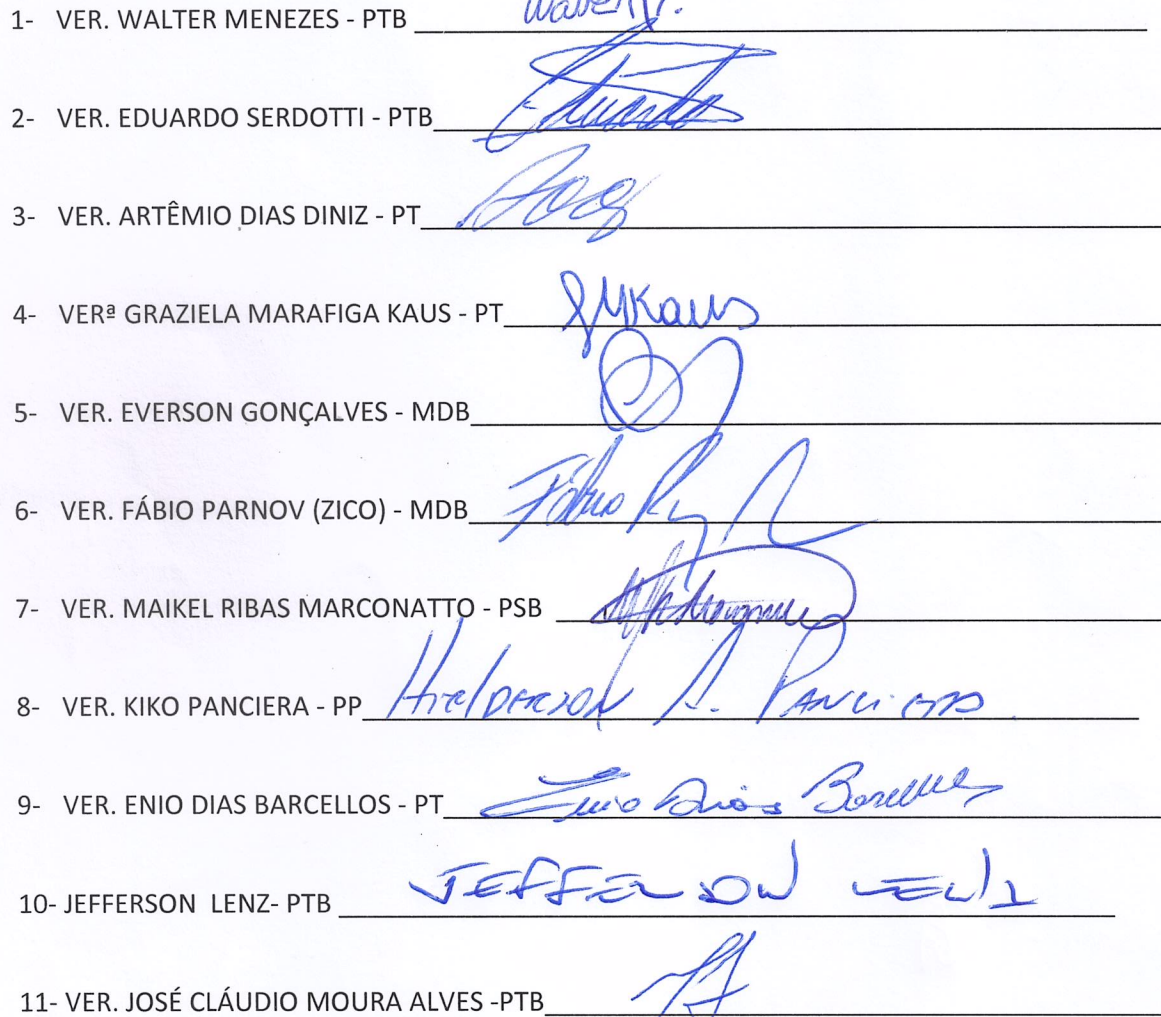 1- VER. WALTER MENEZES - PTB Walter M.
2- VER. EDUARDO SERDOTTI - PTB Eduardo
3- VER. ARTÊMIO DIAS DINIZ - PT
4- VERª GRAZIELA MARAFIGA KAUS - PT GMKaus
5- VER. EVERSON GONÇALVES - MDB
6- VER. FÁBIO PARNOV (ZICO) - MDB Fábio
7- VER. MAIKEL RIBAS MARCONATTO - PSB
8- VER. KIKO PANCIERA - PP
9- VER. ENIO DIAS BARCELLOS - PT Enio Dias Barcellos
10- JEFFERSON LENZ- PTB JEFFERSON LENZ
11- VER. JOSÉ CLÁUDIO MOURA ALVES -PTB